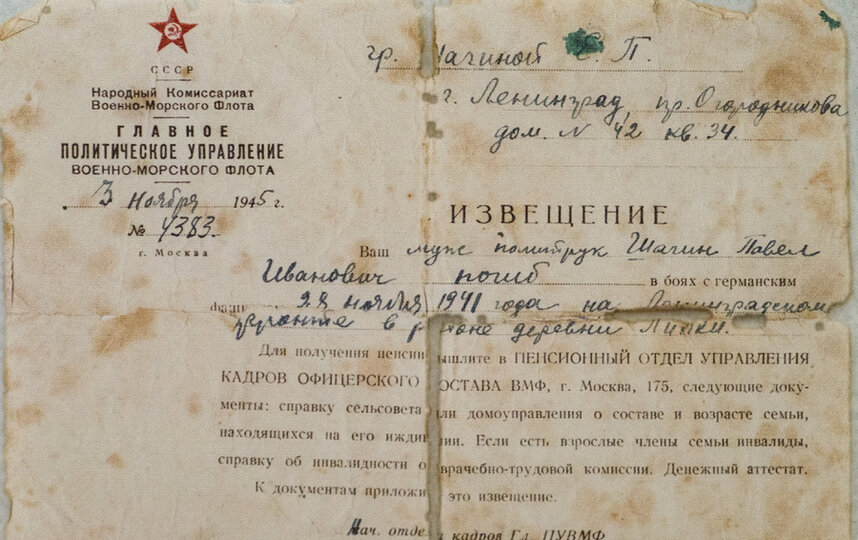 СССР
Народный Комиссариат
Военно-Морского Флота
ГЛАВНОЕ
ПОЛИТИЧЕСКОЕ УПРАВЛЕНИЕ
ВОЕННО-МОРСКОГО ФЛОТА
3 ноября 1945 г.
№ 4383.
г. Москва
гр. Шагиной Е. П.
г. Ленинград, пр. Огородникова
дом. N 42 кв. 34.
ИЗВЕЩЕНИЕ
Ваш муж политрук Шагин Павел
Иванович погиб в боях с германским
ноября 1941 года на Ленинградском
фронте в районе деревни Липки.
Для получения пенсии вышлите в ПЕНСИОННЫЙ ОТДЕЛ УПРАВЛЕНИЯ
КАДРОВ ОФИЦЕРСКОГО СОСТАВА ВМФ, г. Москва, 175, следующие доку-
менты: справку сельсовета или домоуправления о составе и возрасте семьи,
находящихся на его иждивении. Если есть взрослые члены семьи инвалиды,
справку об инвалидности от врачебно-трудовой комиссии. Денежный аттестат.
К документам приложите это извещение.
Нач. отдела кадров Гл. ПУВМФ